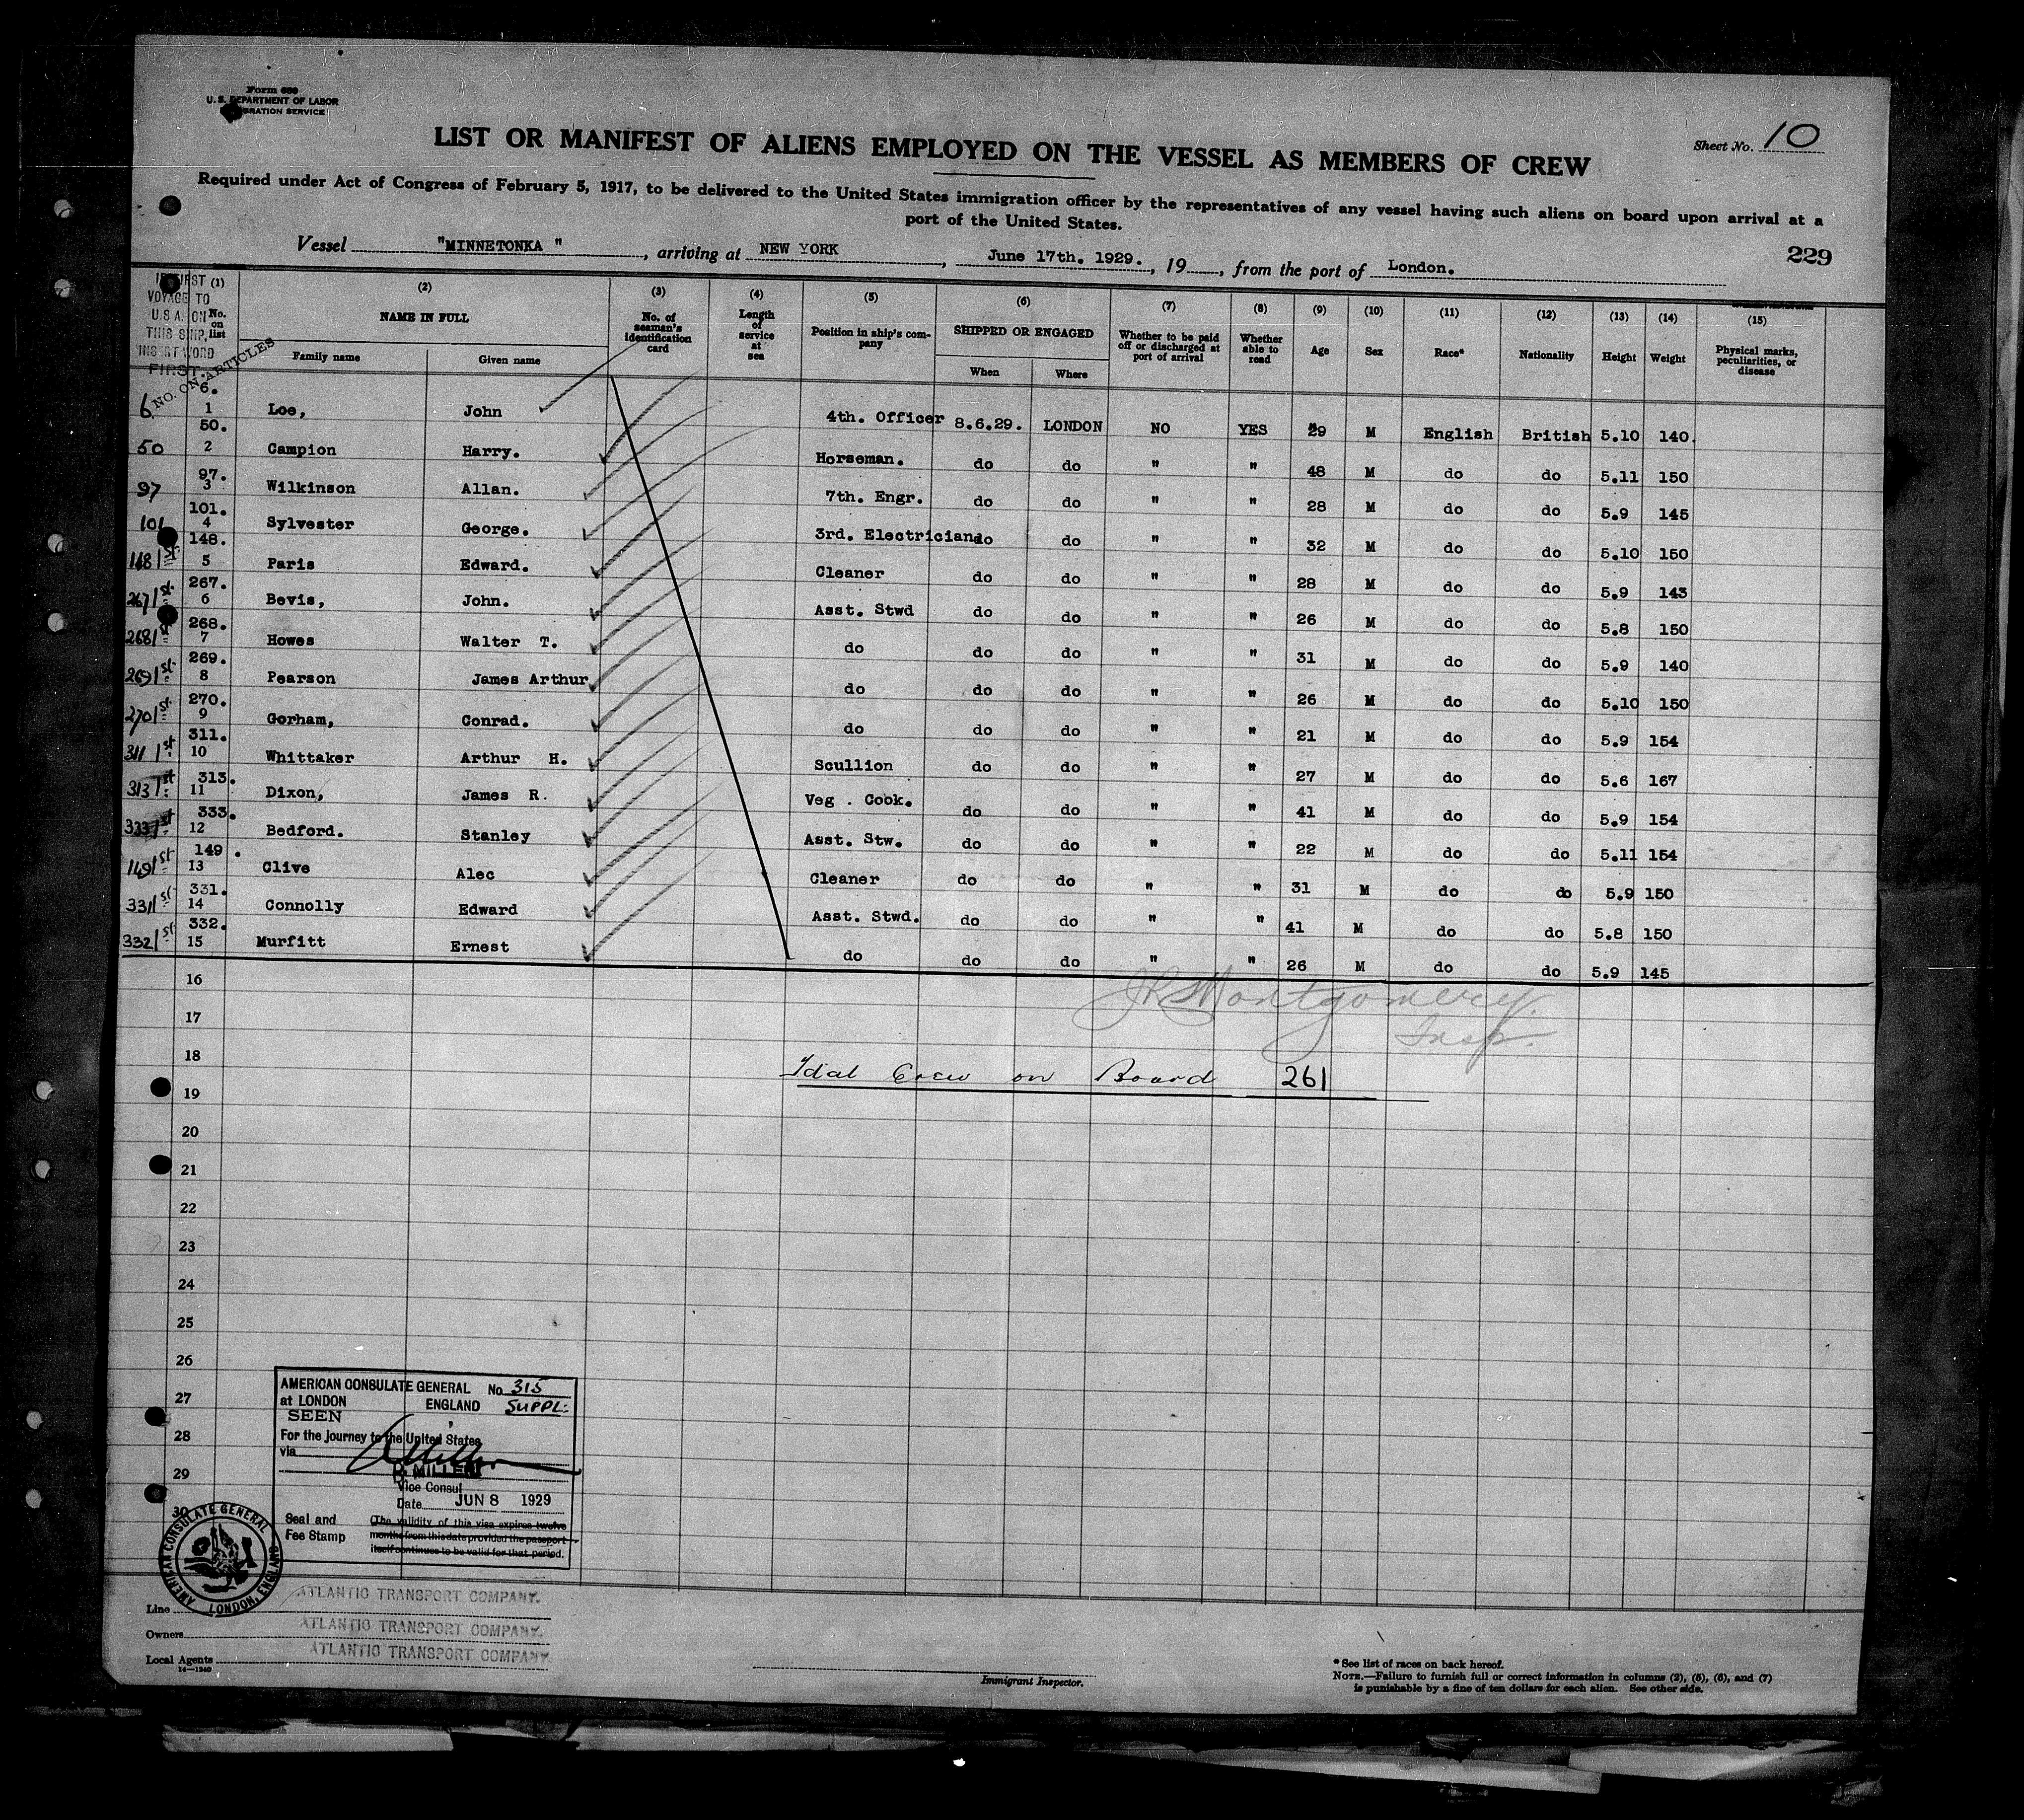 Form 680
U. S. DEPARTMENT OF LABOR
IMMIGRATION SERVICE
Sheet No. 10
LIST OR MANIFEST OF ALIENS EMPLOYED ON THE VESSEL AS MEMBERS OF CREW
Required under Act of Congress of February 5, 1917, to be delivered to the United States immigration officer by the representatives of any vessel having such aliens on board upon arrival at a
port of the United States.
Vessel "MINNETONKA", arriving at NEW YORK, June 17th. 1929., 19, from the port of London.
229
IF FIRST VOYAGE TO U S A. ON THIS SHIP, INSERT WORD FIRST.
NO. ON ARTICLES
(1) No. on list (2) NAME IN FULL Family name Given name (3) No. of seaman's identification card (4) Length of service at sea (5) Position in ship's company (6) SHIPPED OR ENGAGED When Where (7) Whether to be paid off or discharged at port of arrival (8) Whether able to read (9) Age (10) Sex (11) Race* (12) Nationality (13) Height (14) Weight (15) Physical marks, peculiarities, or disease
6 6. 1 Loe, John 4th. Officer 8.6.29. LONDON NO YES 29 M English British 5.10 140.
50 50. 2 Campion Harry. Horseman. do do " " 48 M do do 5.11 150
97 97. 3 Wilkinson Allan. 7th. Engr. do do " " 28 M do do 5.9 145
101 101. 4 Sylvester George. 3rd. Electrician do do " " 32 M do do 5.10 150
148 1st 148. 5 Paris Edward. Cleaner do do " " 28 M do do 5.9 143
267 1st 267. 6 Bevis, John. Asst. Stwd do do " " 26 M do do 5.8 150
268 1st 268. 7 Howes Walter T. do do do " " 31 M do do 5.9 140
269 1st 269. 8 Pearson James Arthur do do do " " 26 M do do 5.10 150
270 1st 270. 9 Gorham, Conrad. do do do " " 21 M do do 5.9 154
311 1st 311. 10 Whittaker Arthur H. Scullion do do " " 27 M do do 5.6 167
313 1st 313. 11 Dixon, James R. Veg . Cook. do do " " 41 M do do 5.9 154
333 1st 333. 12 Bedford. Stanley Asst. Stw. do do " " 22 M do do 5.11 154
149 1st 149. 13 Clive Alec Cleaner do do " " 31 M do do 5.9 150
331 1st 331. 14 Connolly Edward Asst. Stwd. do do " " 41 M do do 5.8 150
332 1st 332. 15 Murfitt Ernest do do do " " 26 M do do 5.9 145
16
JR Montgomery
17
Insp.
18
Total Crew on Board 261
19
20
21
22
23
24
25
26
27
28
29
30
AMERICAN CONSULATE GENERAL No. 315
at LONDON ENGLAND SUPPL:
SEEN
For the journey to the United States
via
D. MILLER
Vice Consul
Date JUN 8 1929
Seal and Fee Stamp
(The validity of this visa expires twelve
months from this date provided the passport
itself continues to be valid for that period.
AMERICAN CONSULATE GENERAL LONDON, ENGLAND
Line ATLANTIC TRANSPORT COMPANY.
Owners ATLANTIC TRANSPORT COMPANY.
Local Agents ATLANTIC TRANSPORT COMPANY.
14—1240
Immigrant Inspector.
* See list of races on back hereof.
NOTE.—Failure to furnish full or correct information in columns (2), (5), (6), and (7)
is punishable by a fine of ten dollars for each alien. See other side.